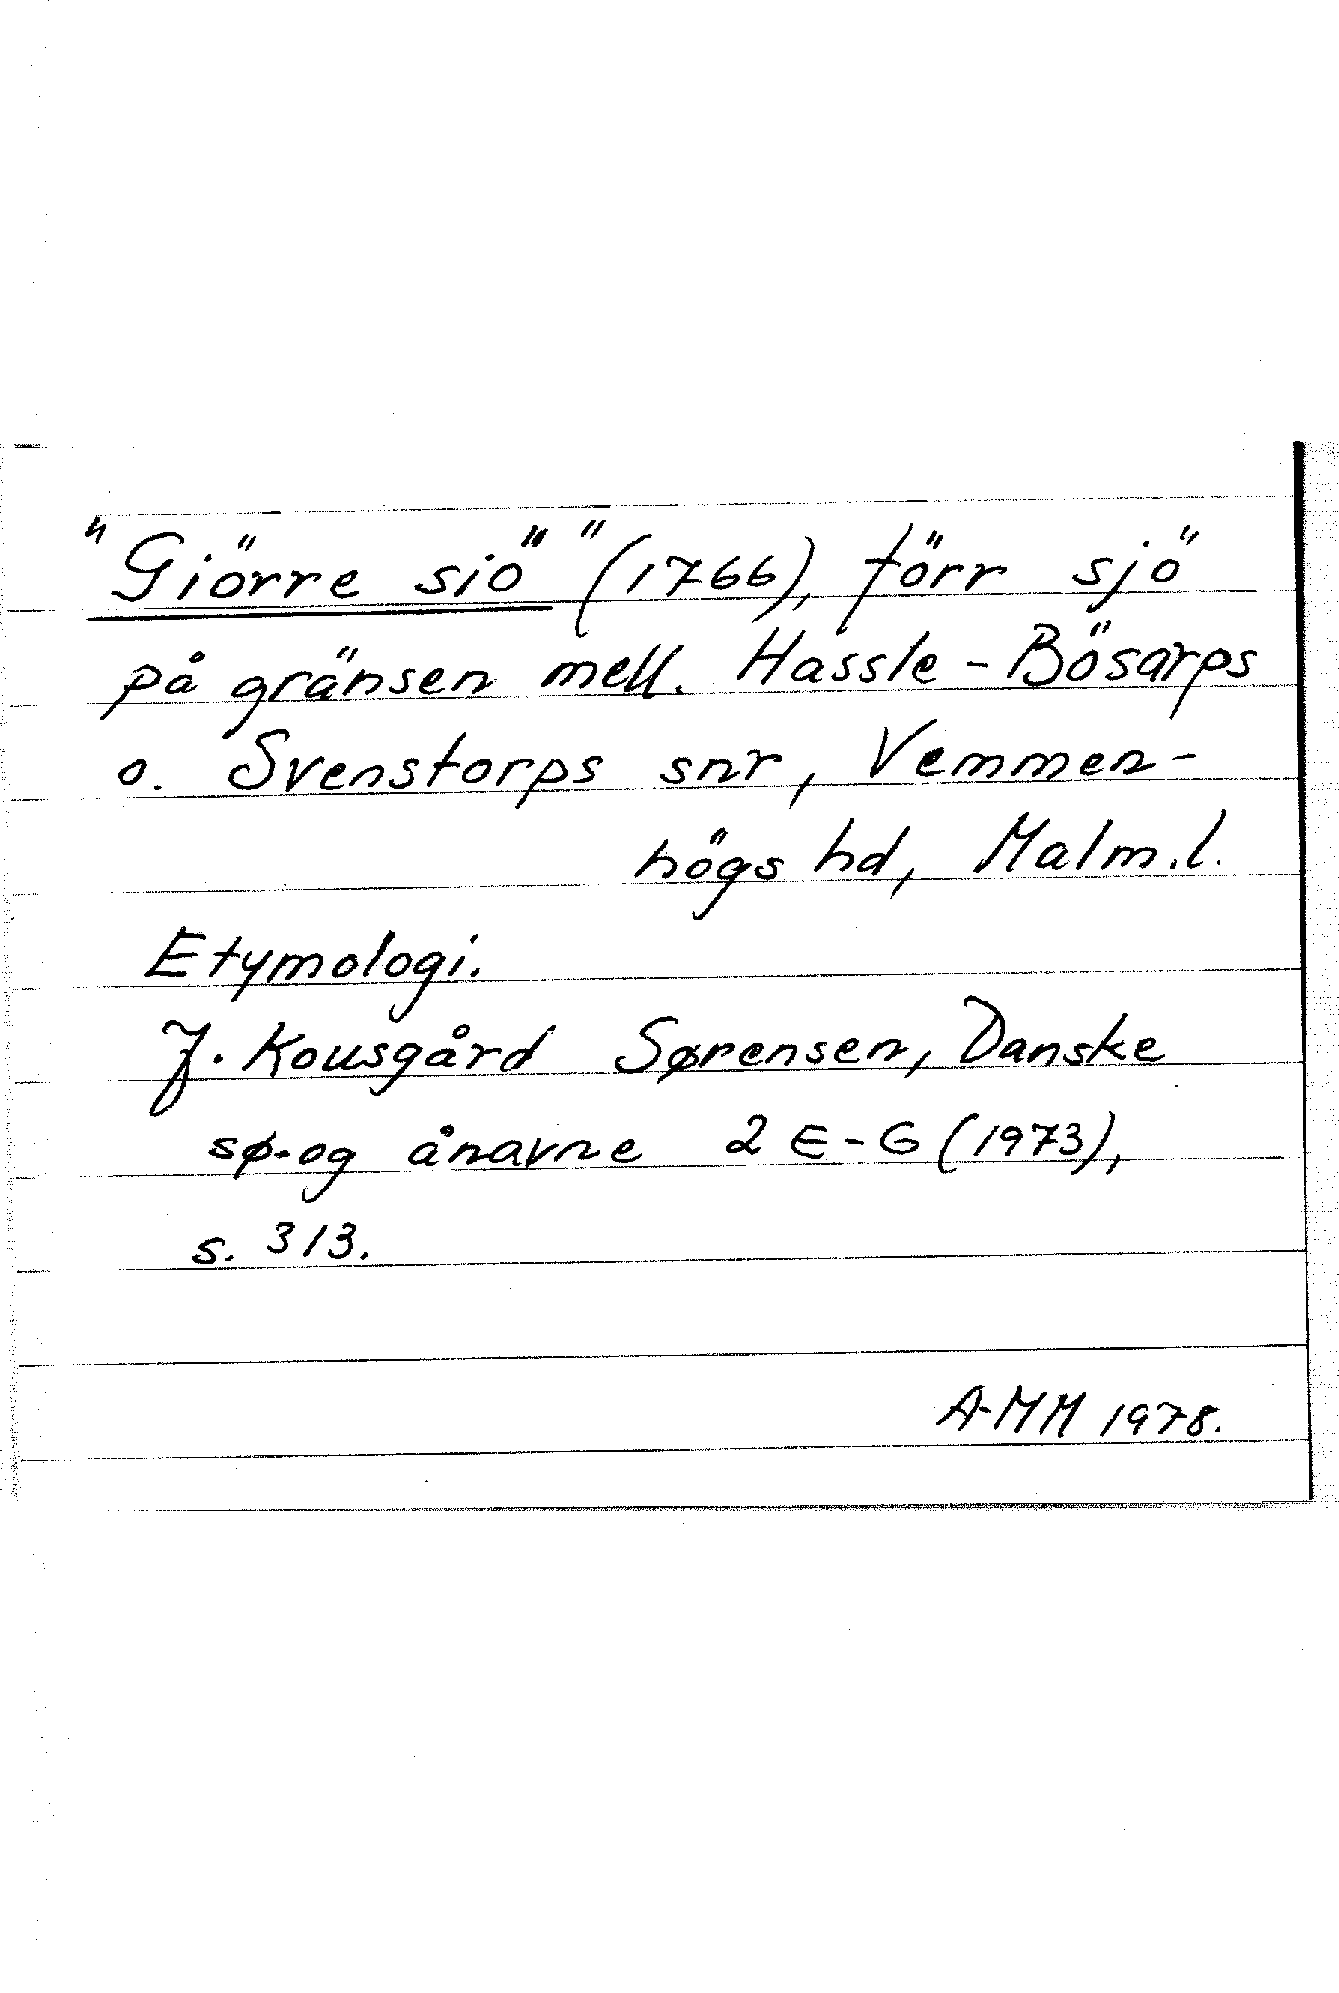 "Giörre siö" (1766), förr sjö
på gränsen mell. Hassle-Bösarps
o. Svenstorps snr, Vemmen-
högs hd, Malm.l.
Etymologi.
J. Kousgård Sørensen, Danske
sø-og ånavne 2 E-G (1973),
s. 313.
A-MM 1978.